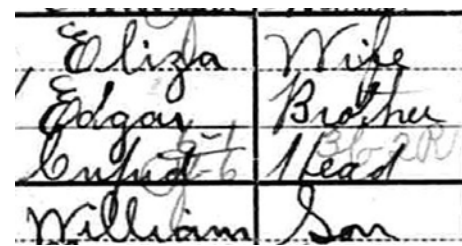 Eliza Wife
Edgar Brother
Head
William Son